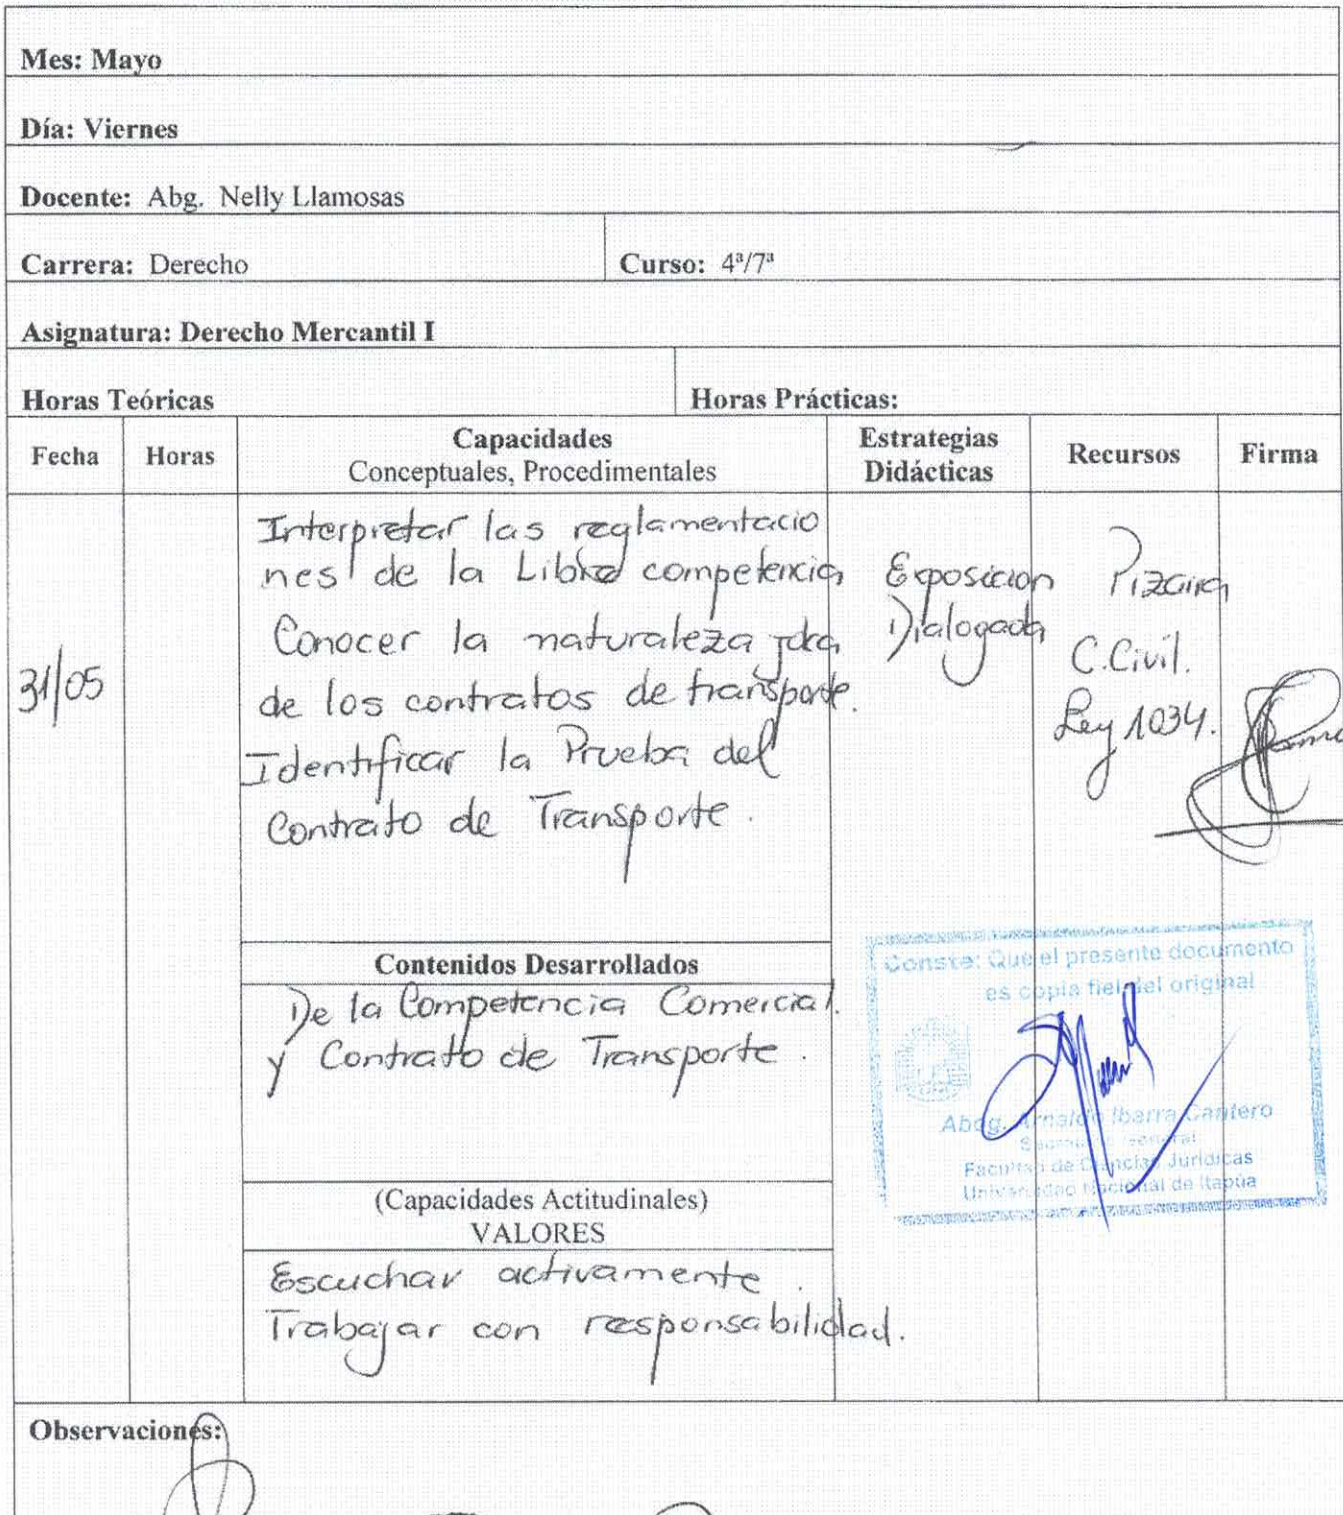 Mes: Mayo
Día: Viernes
Docente: Abg. Nelly Llamosas
Carrera: Derecho Curso: 4ª/7ª
Asignatura: Derecho Mercantil I
Horas Teóricas Horas Prácticas:
Fecha Horas Capacidades Conceptuales, Procedimentales Estrategias Didácticas Recursos Firma
31/05
Interpretar las reglamentacio
nes de la Libre competencia
Conocer la naturaleza jdca
de los contratos de transporte.
Identificar la Prueba del
Contrato de Transporte.
Exposicion
Dialogada
Pizarra
C.Civil.
Ley 1034.
Contenidos Desarrollados
De la Competencia Comercial
y Contrato de Transporte.
(Capacidades Actitudinales)
VALORES
Escuchar activamente.
Trabajar con responsabilidad.
Conste: Que el presente documento
es copia fiel del original
Abog. Arnaldo Ibarra Cantero
Secretario General
Facultad de Ciencias Jurídicas
Universidad Nacional de Itapúa
Observaciones: